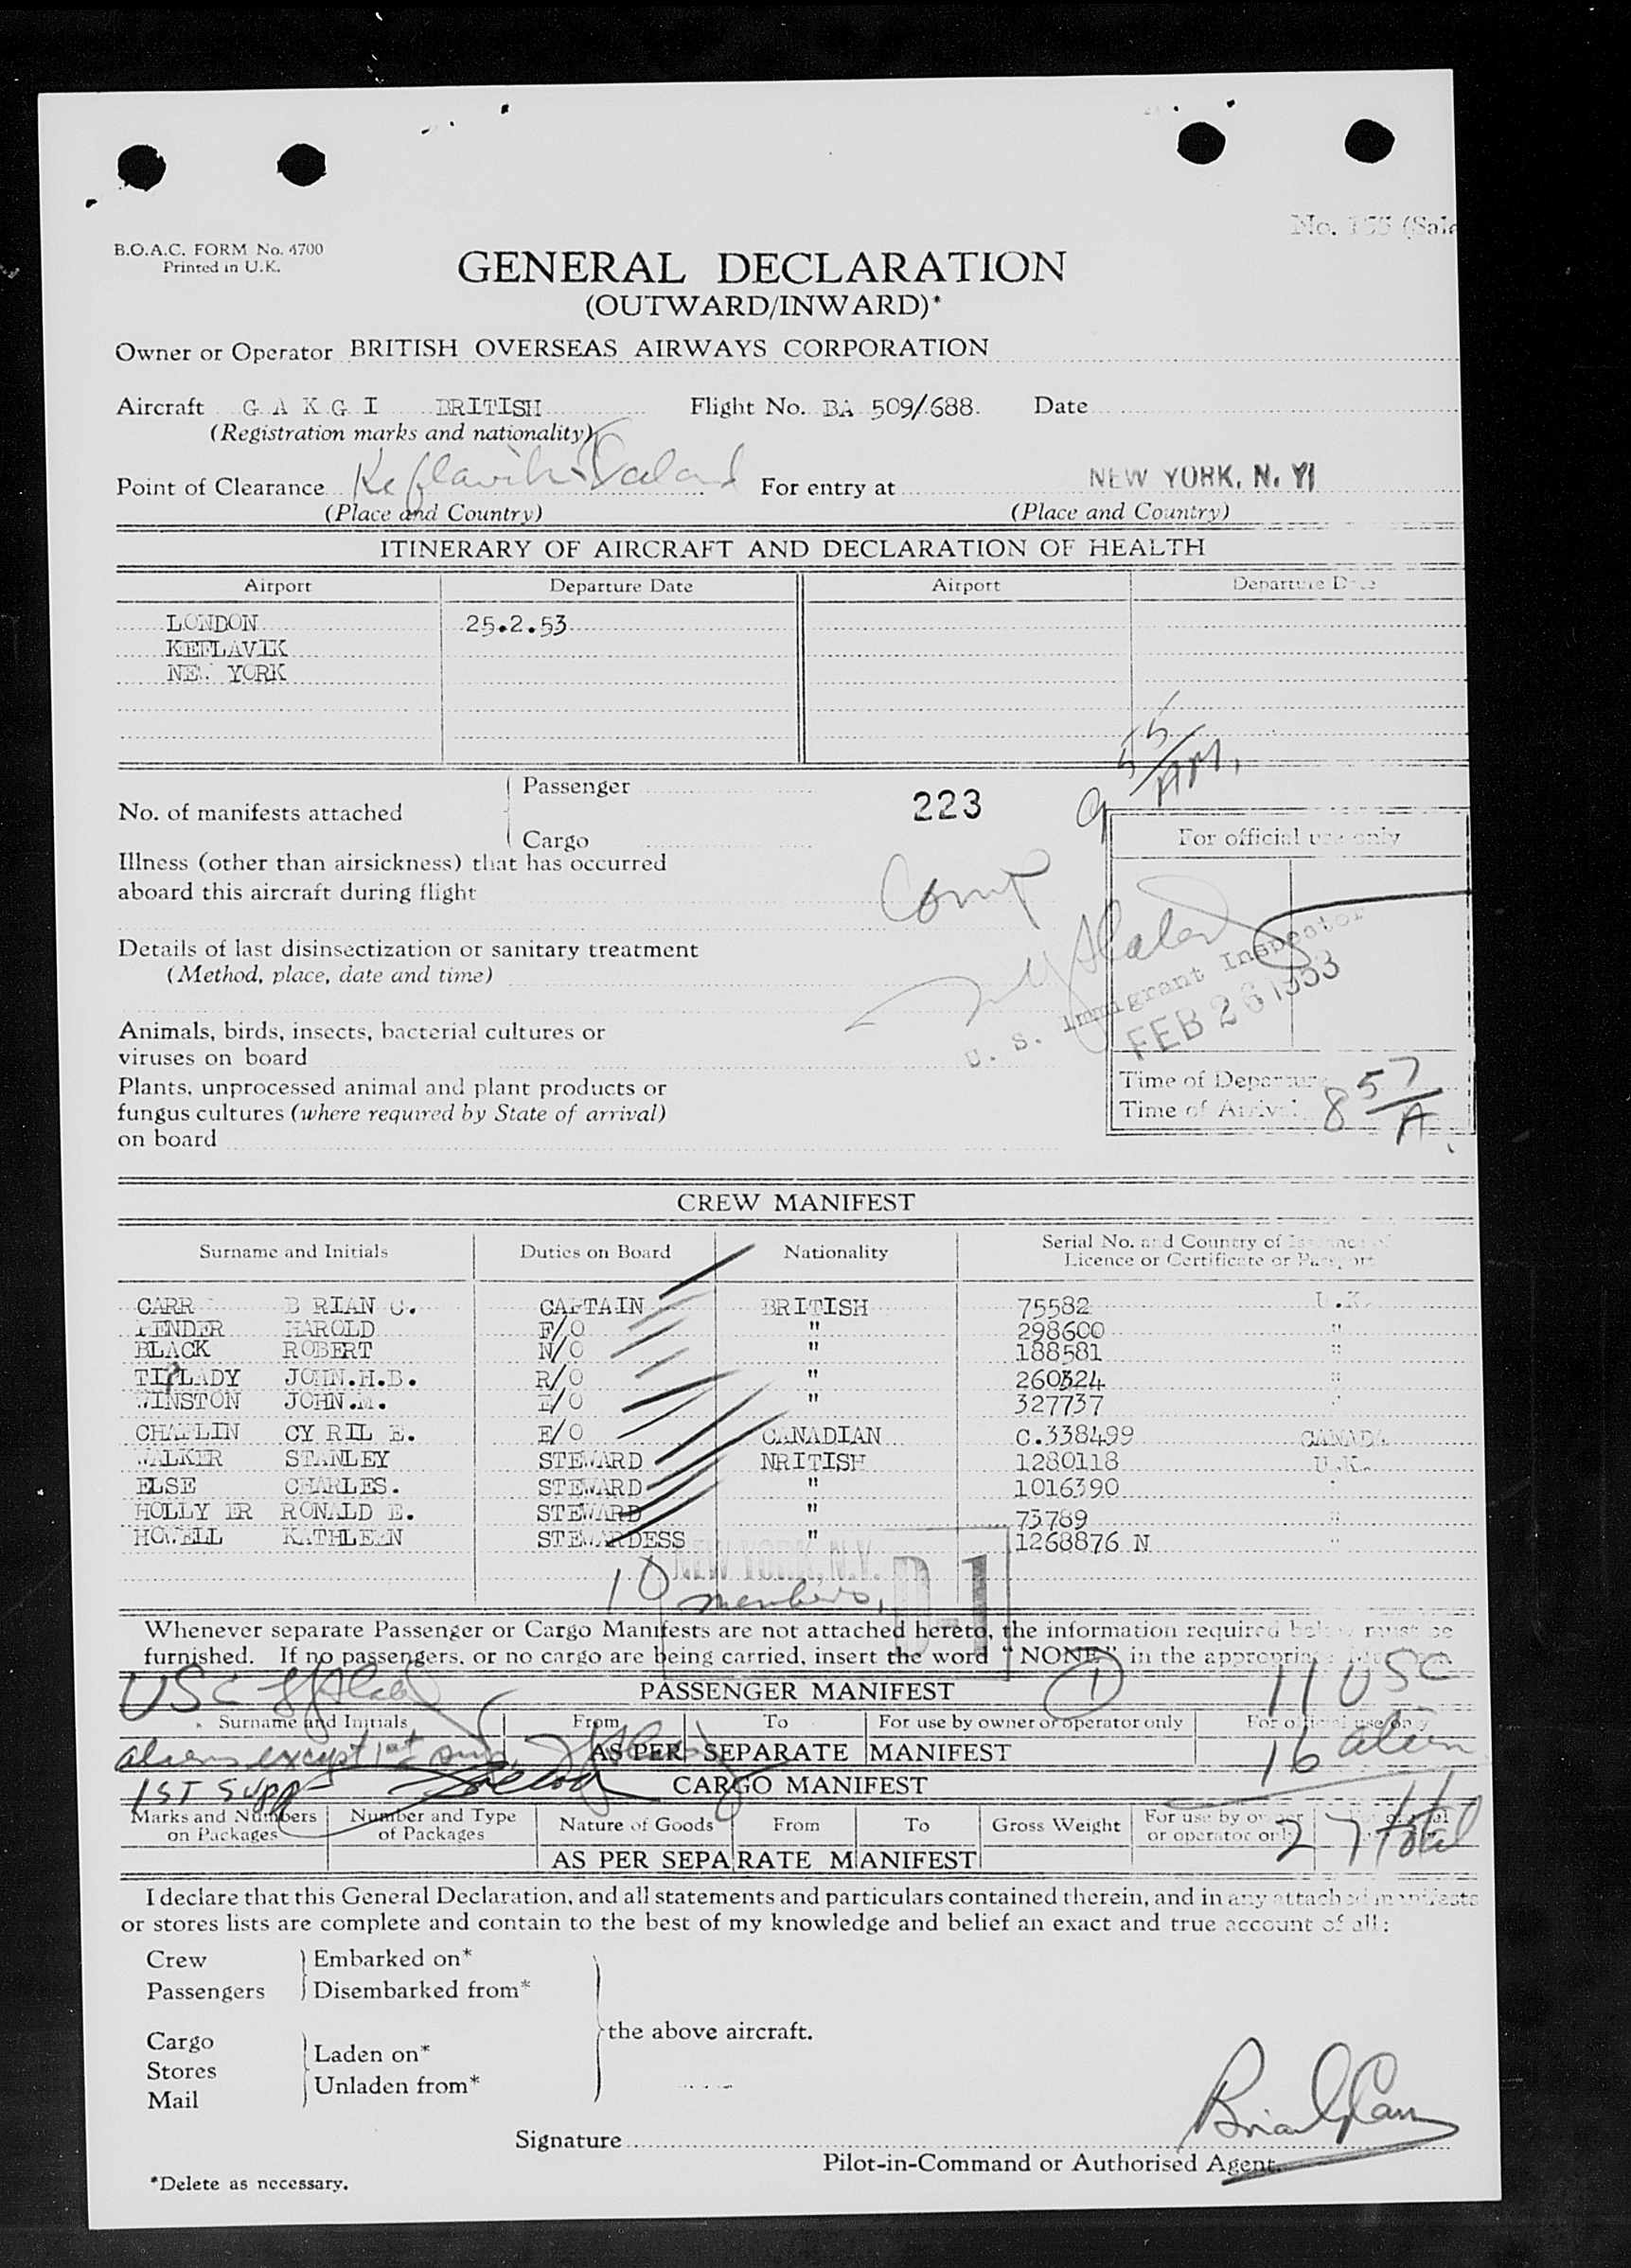 No. 155 (Sale
B.O.A.C. FORM No. 4700
Printed in U.K.
GENERAL DECLARATION
(OUTWARD/INWARD)*
Owner or Operator BRITISH OVERSEAS AIRWAYS CORPORATION
Aircraft G A K G I BRITISH Flight No. BA 509/688. Date
(Registration marks and nationality)
Point of Clearance Keflavik Iceland For entry at NEW YORK, N. Y
(Place and Country) (Place and Country)
ITINERARY OF AIRCRAFT AND DECLARATION OF HEALTH
Airport Departure Date Airport Departure Date
LONDON 25.2.53
KEFLAVIK
NEW YORK
9 55/AM.
Passenger
No. of manifests attached 223
Cargo
For official use only
Illness (other than airsickness) that has occurred
aboard this aircraft during flight
Comp
Details of last disinsectization or sanitary treatment
(Method, place, date and time)
U. S. Immigrant Inspector
FEB 26 1953
Animals, birds, insects, bacterial cultures or
viruses on board
Plants, unprocessed animal and plant products or
fungus cultures (where required by State of arrival)
on board
Time of Departure
Time of Arrival 8 57/A.
CREW MANIFEST
Surname and Initials Duties on Board Nationality Serial No. and Country of Issuance of
Licence or Certificate or Passport
CARR B RIAN C. CAPTAIN BRITISH 75582 U.K.
PENDER HAROLD F/O " 298600 "
BLACK ROBERT N/O " 188581 "
TIPLADY JOHN.H.B. R/O " 260324 "
WINSTON JOHN.M. E/O " 327737 "
CHAPLIN CY RIL E. E/O CANADIAN C.338499 CANADA
WALKER STANLEY STEWARD NRITISH 1280118 U.K.
ELSE CHARLES. STEWARD " 1016390 "
HOLLY ER RONALD E. STEWARD " 73789 "
HOWELL KATHLEEN STEWARDESS " 1268876 N "
NEW YORK, N.Y. D-1
10 members,
Whenever separate Passenger or Cargo Manifests are not attached hereto, the information required below must be
furnished. If no passengers, or no cargo are being carried, insert the word "NONE" in the appropriate
USC PASSENGER MANIFEST 1 11 USC
Surname and Initials From To For use by owner or operator only For official use only
aliens except 1st AS PER SEPARATE MANIFEST 16 alien
1ST SUPP CARGO MANIFEST
Marks and Numbers on Packages Number and Type of Packages Nature of Goods From To Gross Weight For use by owner or operator only
27 total
AS PER SEPARATE MANIFEST
I declare that this General Declaration, and all statements and particulars contained therein, and in any attached manifests
or stores lists are complete and contain to the best of my knowledge and belief an exact and true account of all:
Crew Embarked on*
Passengers Disembarked from*
the above aircraft.
Cargo
Laden on*
Stores
Unladen from*
Mail
Signature Brian C Carr
Pilot-in-Command or Authorised Agent.
*Delete as necessary.